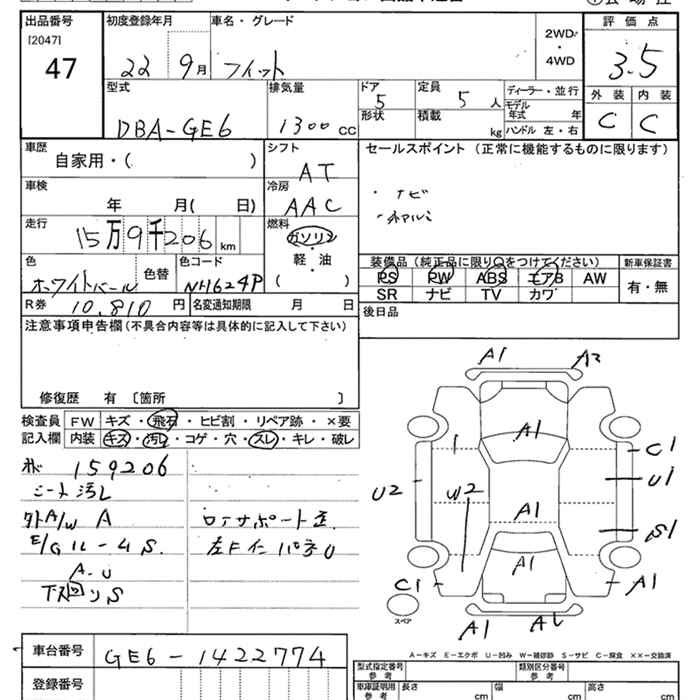 出品番号 初度登録年月 車名・グレード 評価点
[2047]
47 22 9月 フィット 2WD・4WD 3.5
型式 排気量 ドア 定員 ディーラー・並行 外装 内装
DBA-GE6 1300cc 5 5人 モデル年式 年 C C
形状 積載 kg ハンドル 左・右
車歴 シフト セールスポイント (正常に機能するものに限ります)
自家用・( ) AT
車検 冷房 ・ナビ
年 月( 日) AAC
走行 燃料
15万9千206km ガソリン
・
軽・油
( )
色 色替 色コード 装備品 (純正品に限り○をつけてください) 新車保証書
ホワイトパール NH624P PS PW ABS エアB AW 有・無
SR ナビ TV カワ
R券 10,810円 名変通知期限 月 日 後日品
注意事項申告欄 (不具合内容等は具体的に記入して下さい)
修復歴 有 [箇所 ]
検査員 FW キズ・飛石・ヒビ割・リペア跡・×要
記入欄 内装 キズ・汚レ・コゲ・穴・スレ・キレ・破レ
159206
シート汚レ
A/W A
E/GルームS.
A.U
下回りS
A1 A2
A1
C1
U2 W2 U1
A1 S1
A1
C1 A1
スペア
A1
A-キズ E-エクボ U-凹み W-補修跡 S-サビ C-腐食 ××-交換済
車台番号 GE6-1422774 型式指定番号 類別区分番号
参考 参考
登録番号 車庫証明用 長さ 幅 高さ
参考 cm cm cm